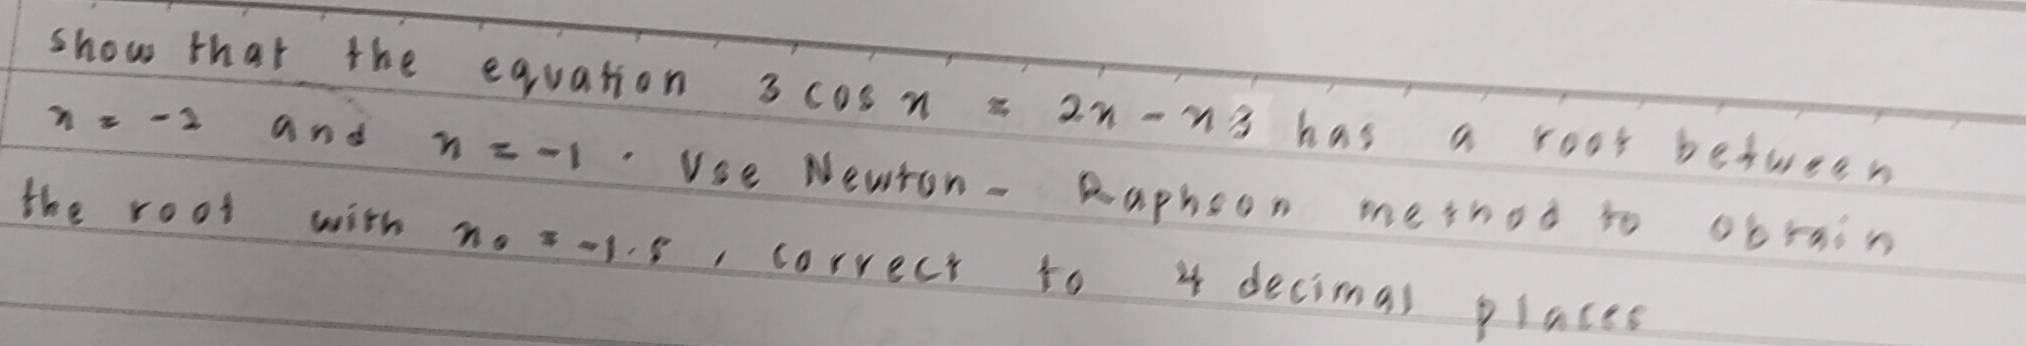 show that the equation 3 cos x = 2x - x3 has a root between
x = -2 and x = -1 . Use Newton - Raphson method to obtain
the root with x0 = -1.5 , correct to 4 decimal places